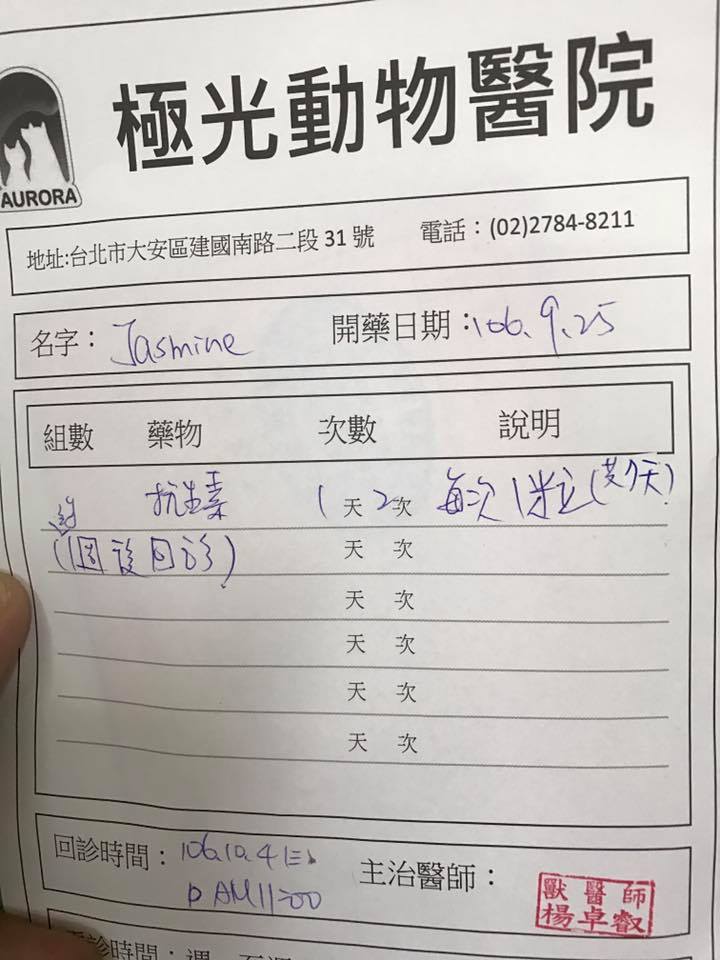 極光動物醫院
AURORA
地址:台北市大安區建國南路二段 31 號 電話：(02)2784-8211
名字： Jasmine 開藥日期：106.9.25
組數 藥物 次數 說明
抗生素 1 天 2 次 每次1粒(共7天)
(1個 後回診) 天 次
天 次
天 次
天 次
天 次
回診時間：106.10.4(三) 主治醫師：
AM11:00
獸醫師
楊卓叡